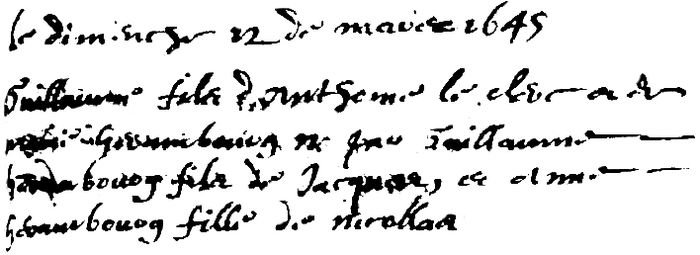 le dimenche 12 de mars 1645
Guillaume filz d'Anthoine le clerc a de
herambourg n par Guillaume
bourg filz de Jacques, et anne
herambourg fille de nicollas